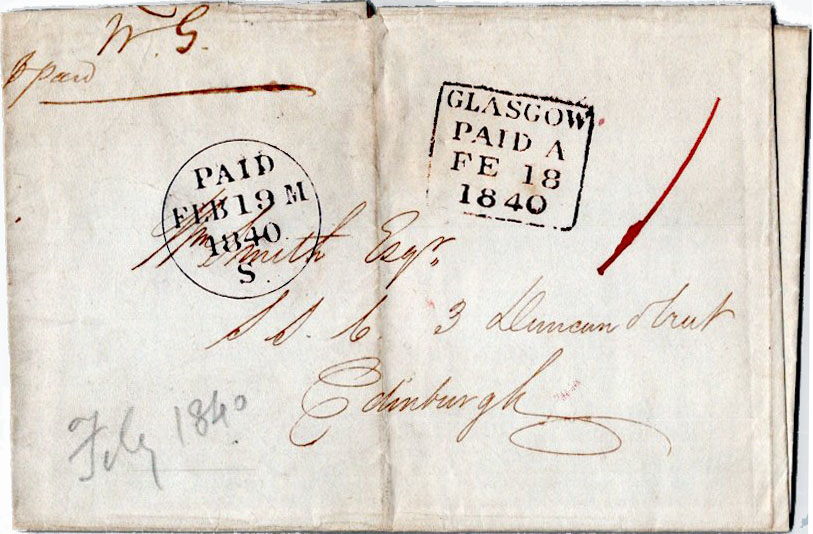 W. G.
paid
GLASGOW
PAID A
FE 18
1840
PAID
FEB 19 M
1840
S
Wm Smith Esqr.
S. S. C. 3 Duncan Street
Edinburgh
Feby 1840